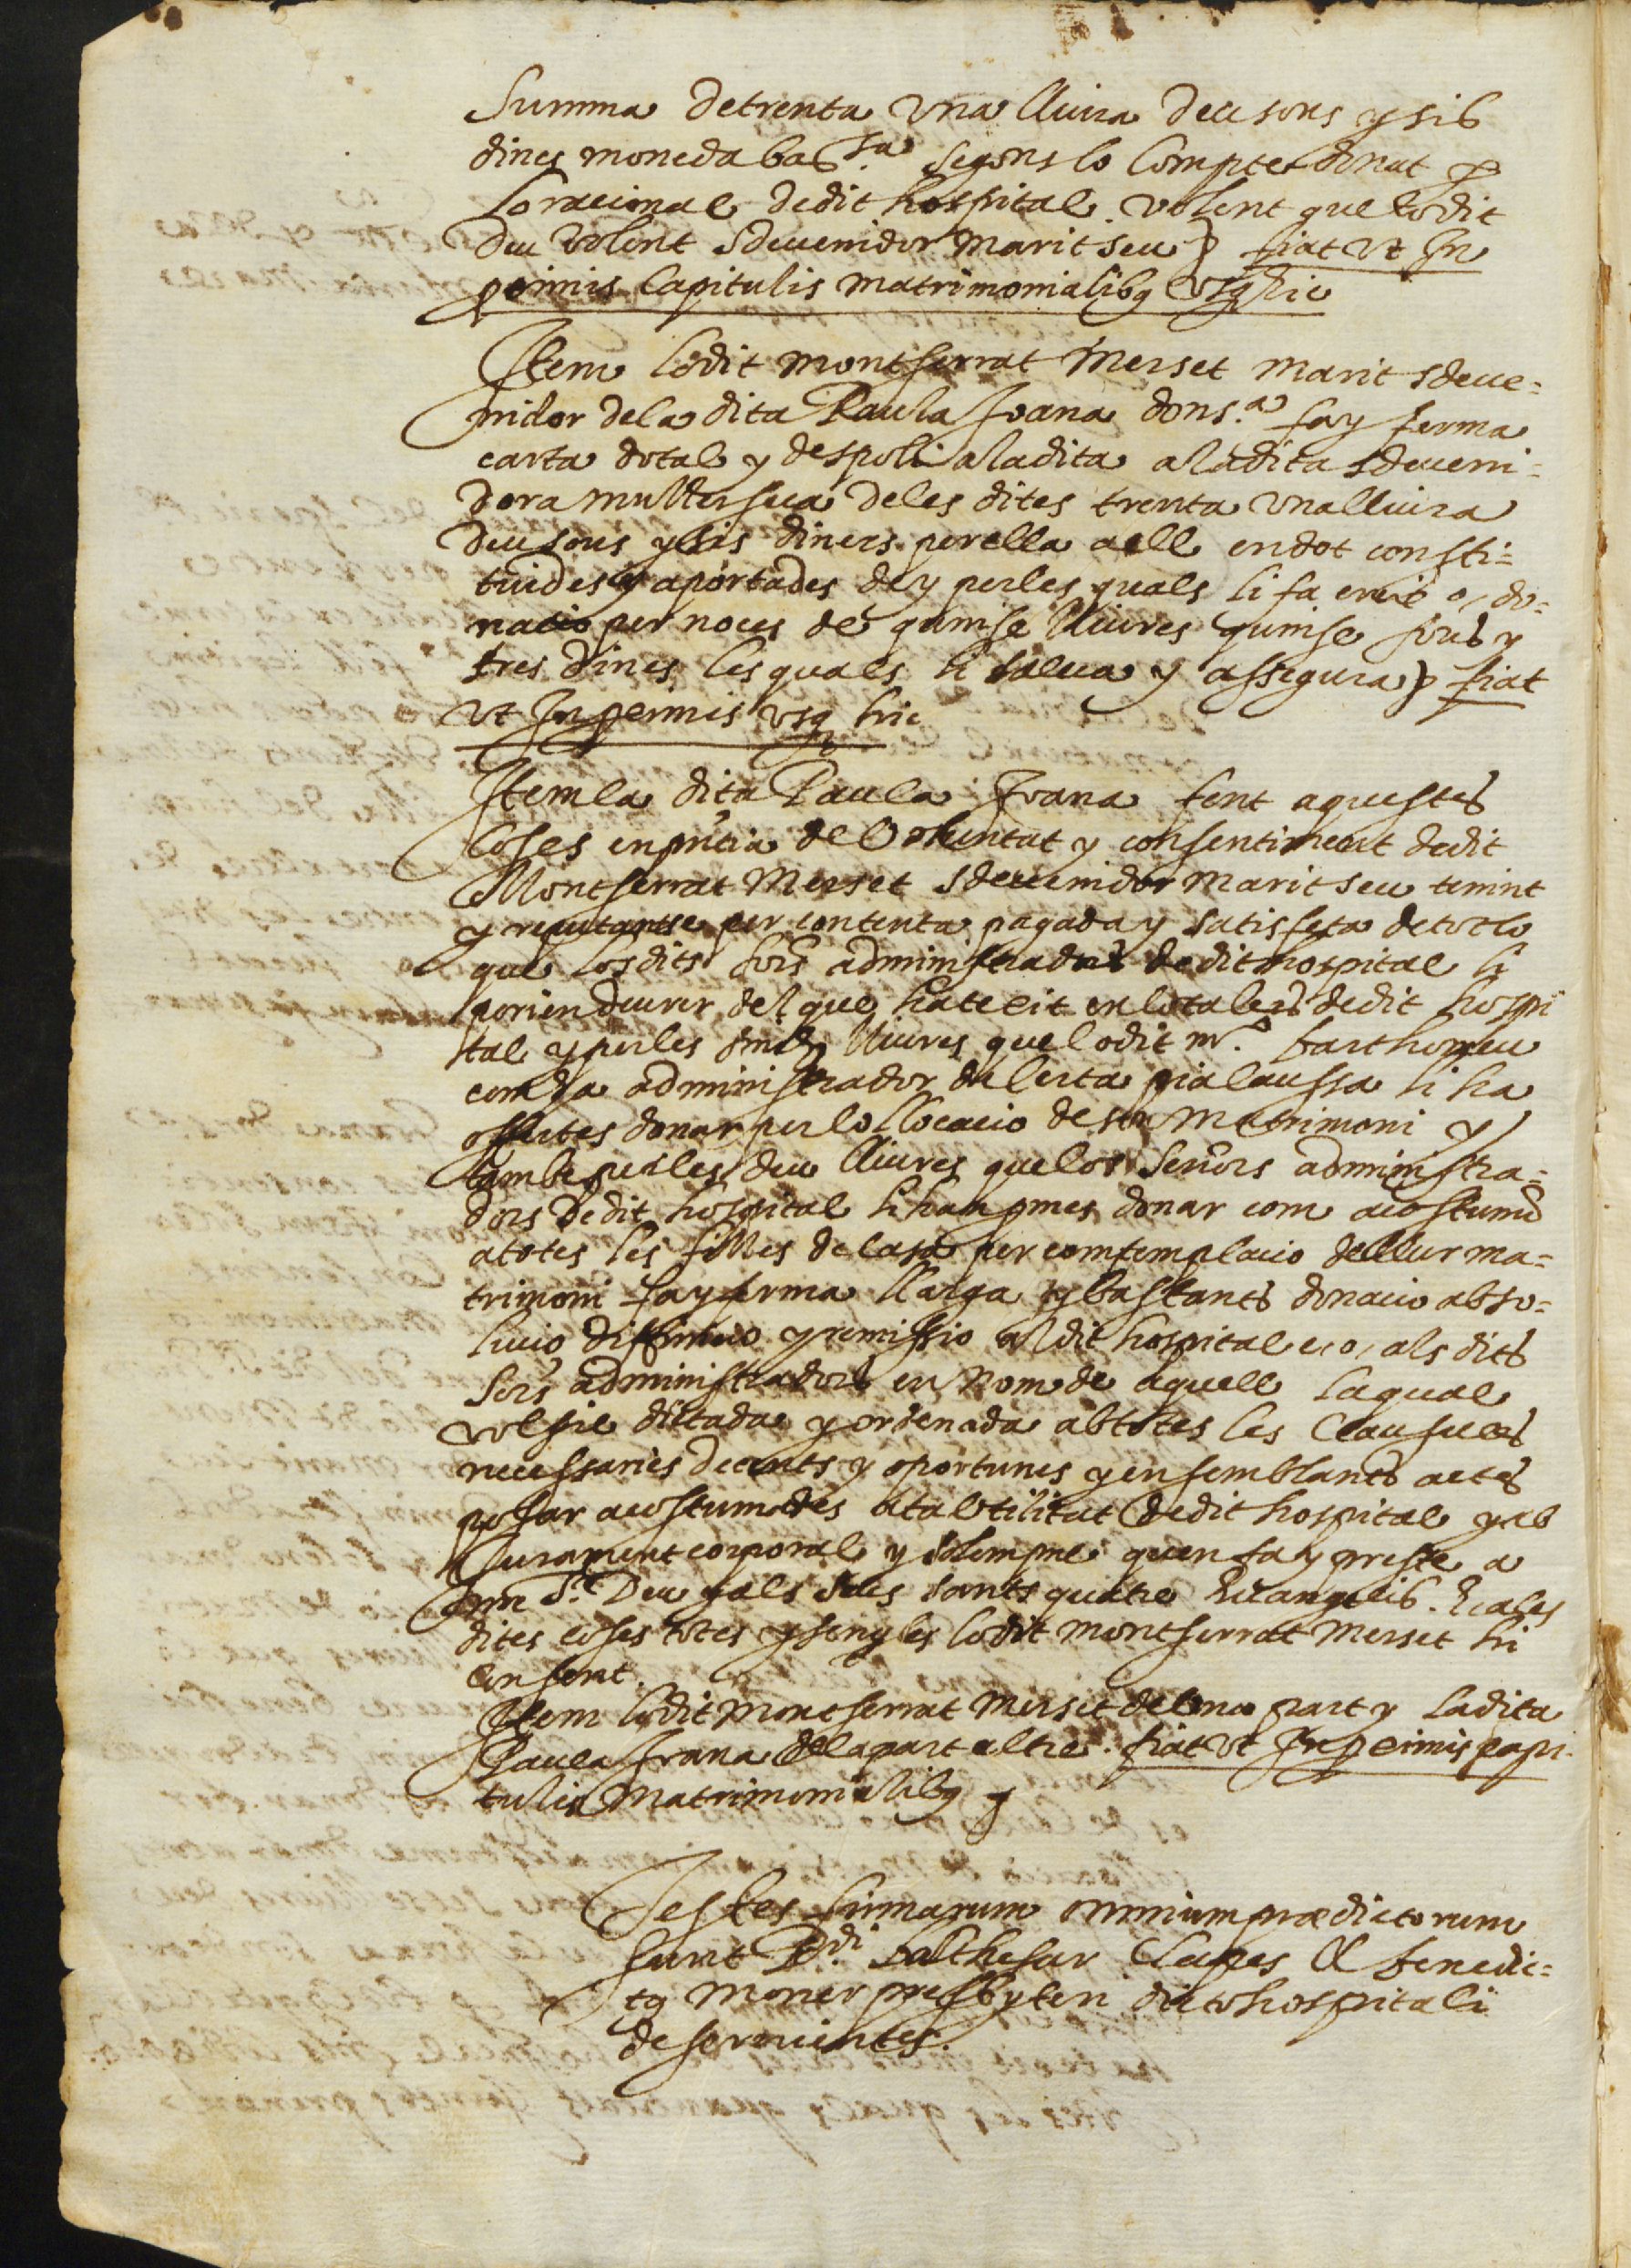 Summa de trenta una lliura deu sous y sis
dines moneda bar.sa segons lo Compte donat per
lo racional de dit hospital. volent que lo dit
deu volent sdevenidor marit seu) fiat ut In
primis Capitulis matrimonialibq usq hic
Item lo dit Montserrat Merset marit sdeve=
nidor de la dita Paula Joana dons.a fa y ferma
carta dotal y despoli a la dita a la dita sdeveni=
dora muller sua de les dites trenta una lliura
deu sous y sis diners per ella a ell en dot consti=
tuides y aportades de y per les quals li fa creix o, do=
nacio per noces de quinse lliures quinse sous y
tres dines les quals li salva y assegura) fiat
ut In primis usq hic
Item la dita Paula Joana fent aquestes
Coses en pntia de voluntat y consentiment de dit
Montserrat Merset sdevenidor marit seu tenint
y reputantse per contenta pagada y satisfeta de tot lo
que los dits sors administradors de dit hospital li
porien deurer del que ha teixit en lo taler de dit hospi
tal y per les lliures que lo dit mr.o barthomeu
comda administrador de certa pia laussa li ha
offertes donar per lo llocacio de son matrimoni y
tambe per les deu lliures que los Senors administra=
dors de dit hospital li han pmes donar com acostumen
a totes les filles de casa per comtemplacio de llur ma=
trimoni fa y ferma llarga y bastants donacio abso=
lucio diffinicio y remissio al dit hospital e, o, als dits
Sors administradors en nom de aquell la qual
vol sie dictada y ordenada ab totes les Clausules
necessaries decents y oportunes y en semblants actes
posar acostumades a tal utilitat de dit hospital y ab
Jurament corporal y solempne que en fa y preste a
nre S.r Deu y als seus sants quatre Evangelis. E a les
dites coses totes y sengles lo dit Montserrat Merset hi
consent.
Item lo dit Montserrat Merset de una part y la dita
Paula Joana de la part altre. fiat ut In primis Capi-
tulis Matrimonialibq
Testes firmarum omnium prædictorum
sunt R.di balthesar Clapes & benedic=
tq Moner presbyteri dicto hospitali
deservientes.